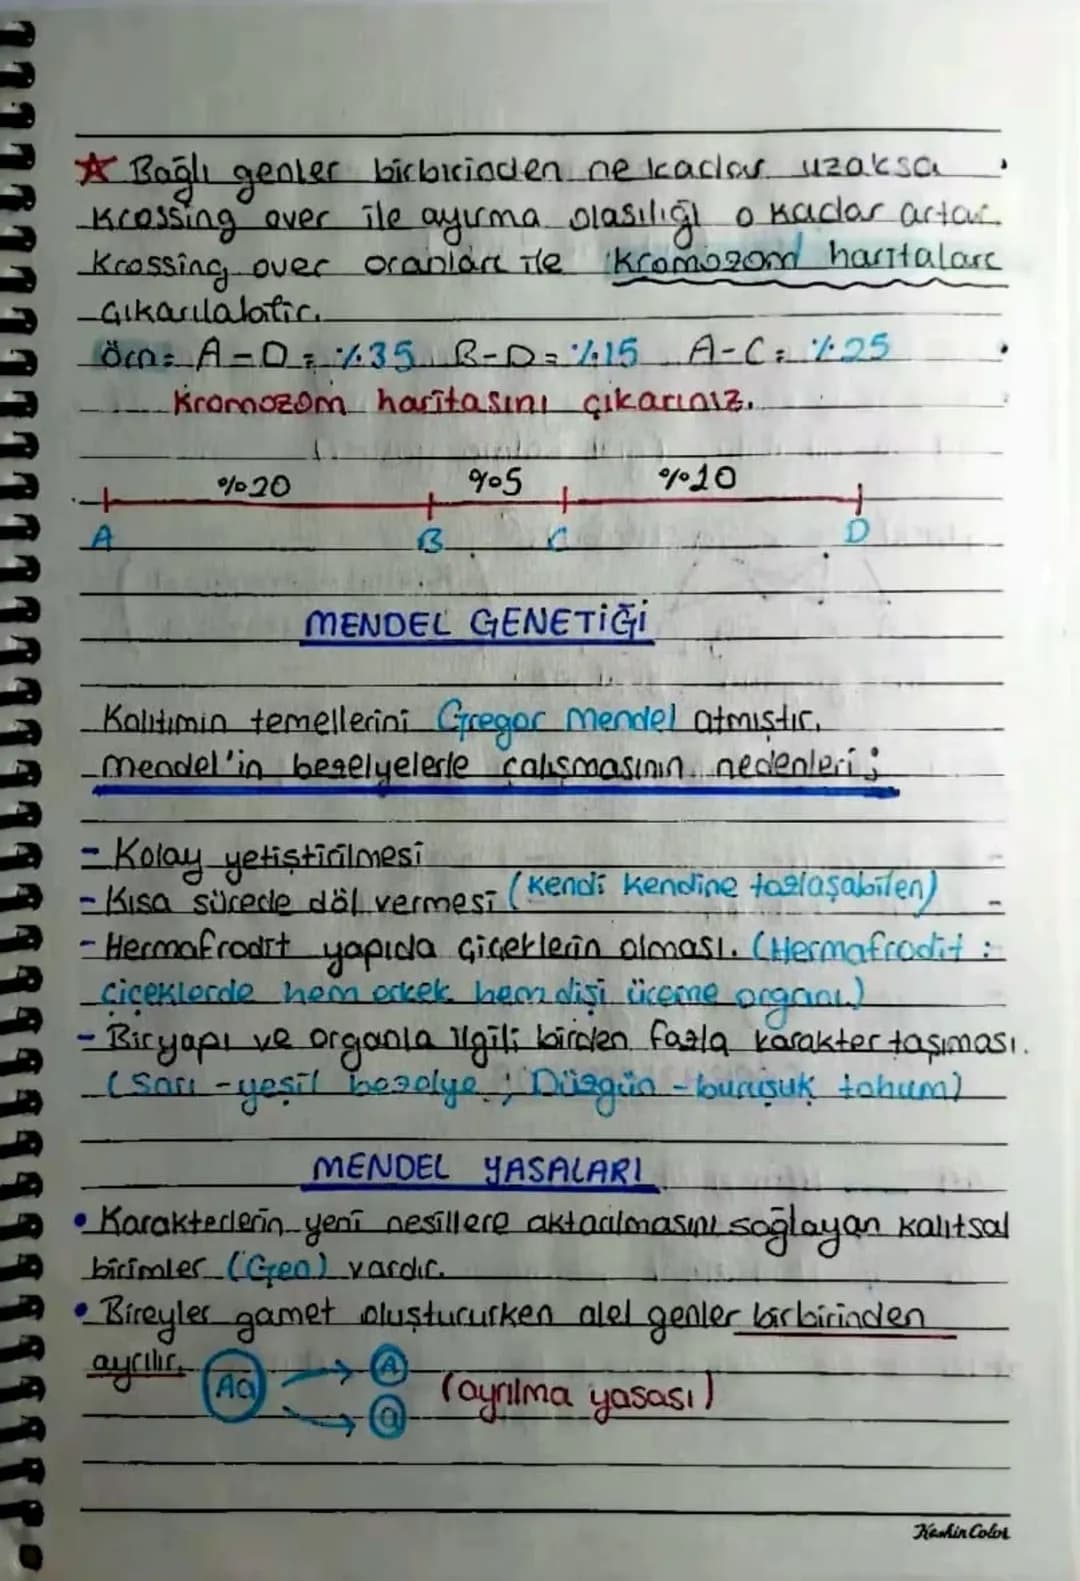 ☆ Bağlı genler birbirinden ne kadar uzaksa
Krossing over ile ayırma olasılığı o kadar artar.
Krossing over oranları ile Kromozom haritaları
Çıkarılabilir.
Örn: A-D = %35 B-D = %15 A-C = %25
Kromozom haritasını çıkarınız.
%20 %5 %10
A B C D
MENDEL GENETİĞİ
Kalıtımın temellerini Gregor Mendel atmıştır.
Mendel'in bezelyelerle çalışmasının nedenleri ;
- Kolay yetiştirilmesi
- Kısa sürede döl vermesi (Kendi kendine tozlaşabilen)
- Hermafrodit yapıda çiçeklerin olması. (Hermafrodit :
çiçeklerde hem erkek hem dişi üreme organı)
- Bir yapı ve organla ilgili birden fazla karakter taşıması.
(Sarı - yeşil bezelye ; Düzgün - buruşuk tohum)
MENDEL YASALARI
• Karakterlerin yeni nesillere aktarılmasını sağlayan kalıtsal
birimler (Gen) vardır.
• Bireyler gamet oluştururken alel genler birbirinden
ayrılır.
Aa A a (ayrılma yasası)
KeskinColor